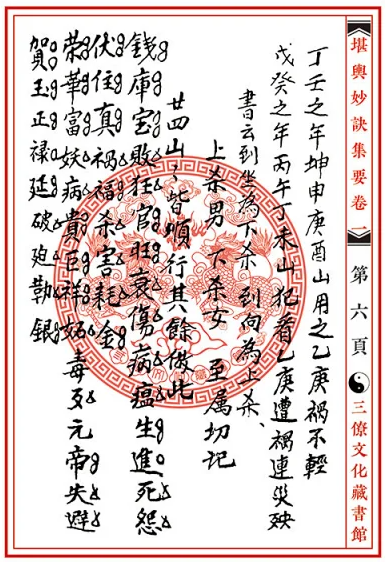 堪輿妙訣集要卷一
第六頁
三僚文化藏書館
丁壬之年坤申庚酉山用之乙庚禍不輕
戊癸之年丙午丁未山犯着乙庚遭禍連災殃
書云到坐為下杀 到向為上杀、
上杀男 下杀女 至属切记
廿四山〻皆順行其餘倣此
錢庫宝敗狂官旺衰傷病瘟生進死怨
伏住真禍福杀害耗金
荣華富妖病貴巨祥妬毒歹元帝失避
賀玉正禄延破廹勒銀